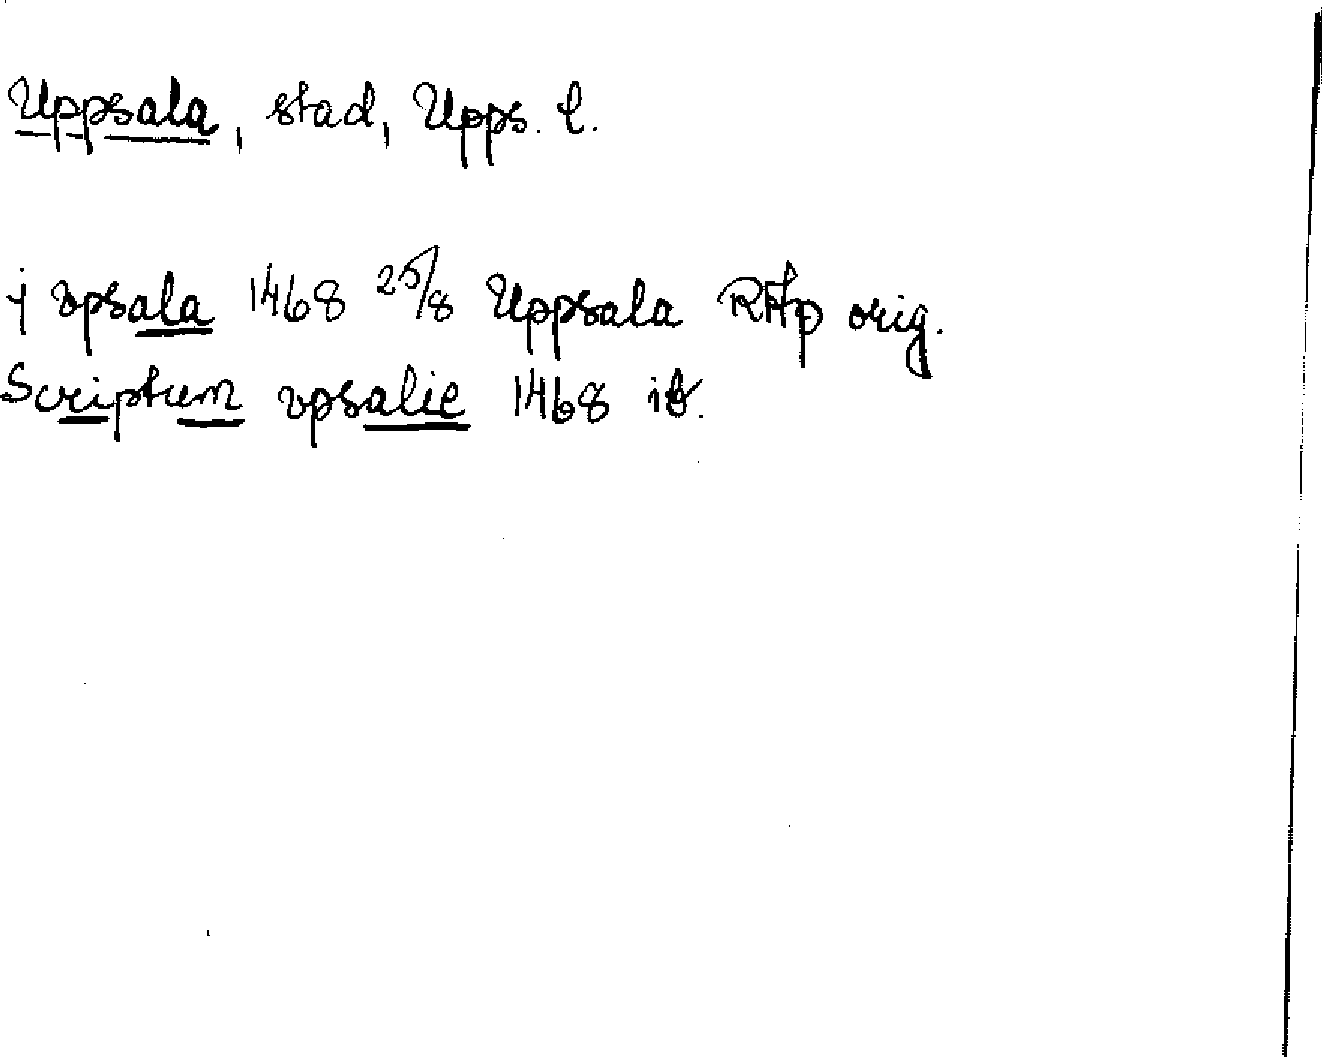 Uppsala, stad, Upps. l.
j vpsala 1468 25/8 Uppsala RAp orig.
Scriptum vpsalie 1468 ib.